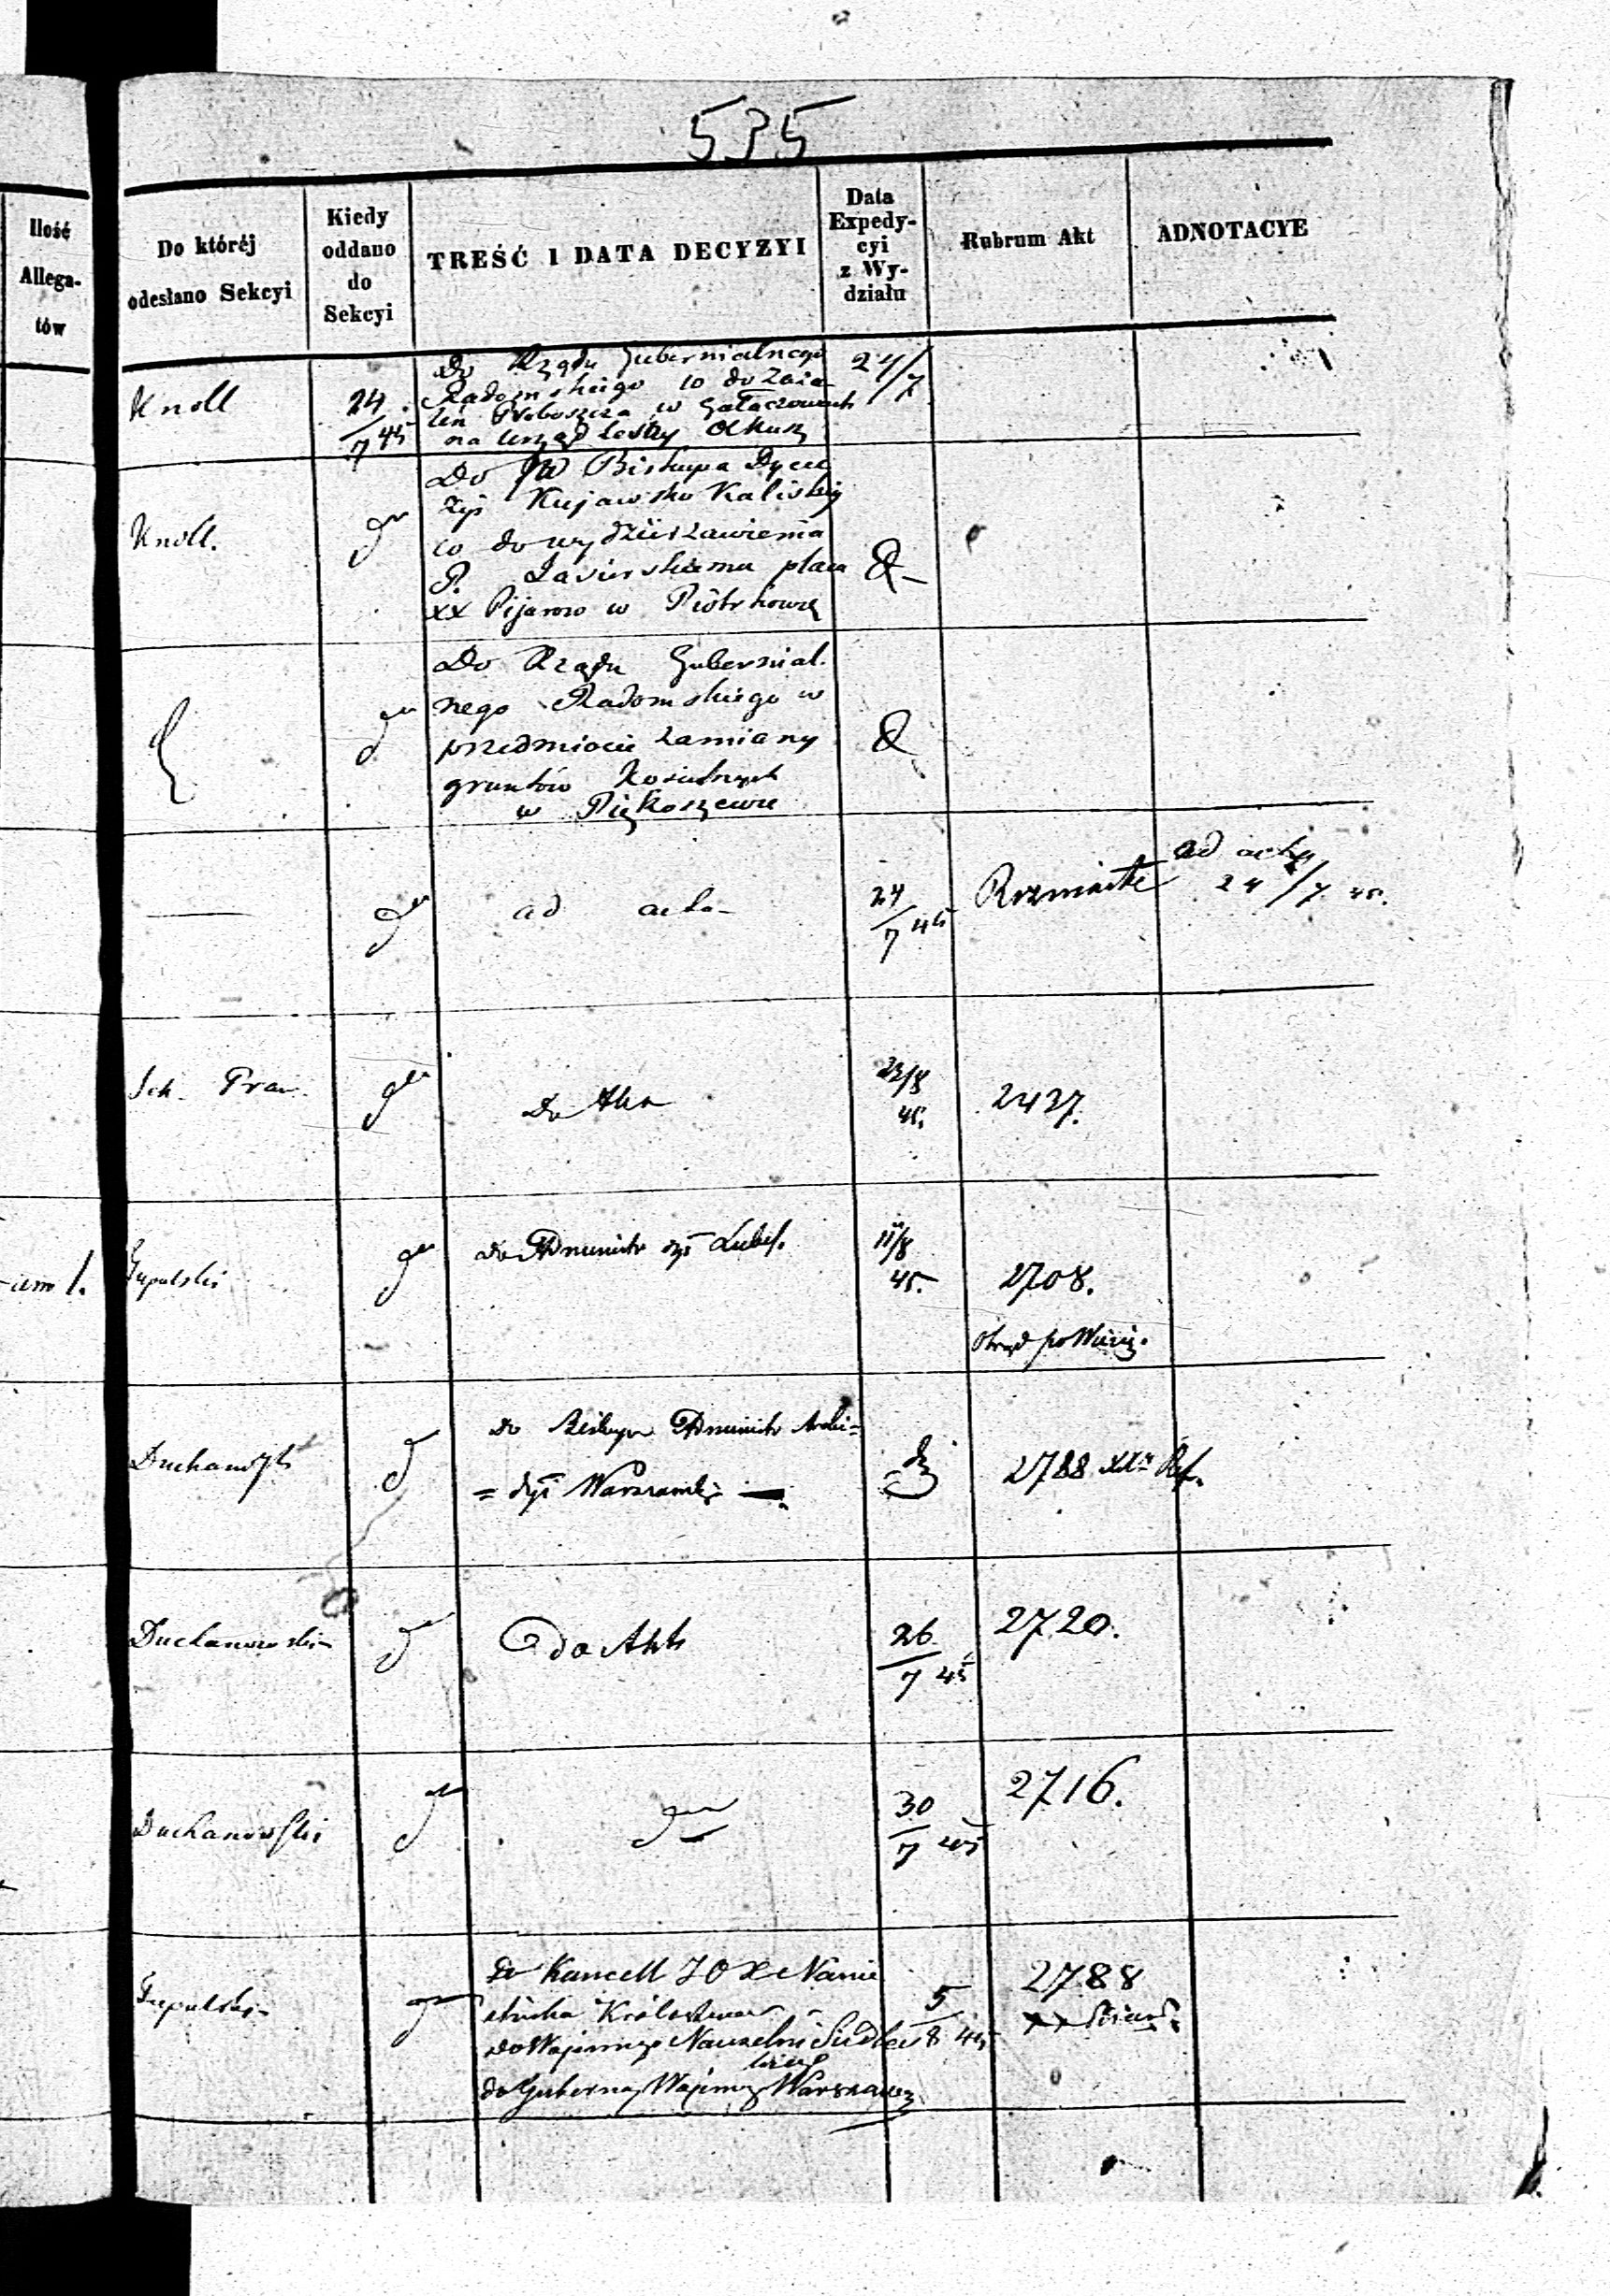 535
Ilość
Allega-
tów
Do któréj
odesłano Sekcyi
Kiedy
oddano
do
Sekcyi
TREŚĆ I DATA DECYZYI
Data
Expedy-
cyi
z Wy-
działu
Rubrum Akt
ADNOTACYE
Knoll
24
7 45
Do Rządu Gubernialnego
Radomskiego co do Zaża-
leń Proboszcza w
na urząd Leśny Olkusz
24/7
Knoll.
Do JW Biskupa Dyece
zyi Kujawsko Kaliskiej
co do wydzierzawienia
P. placu
XX Pijarow w Piotrkowie
Do Rządu Gubernial.
nego Radomskiego w
przedmiocie zamiany
gruntów Kościelnych
w Piękoszewie
ad acta
24
7 45
Rozmaite
ad acta
24/7 45.
Sek. Praw.
Do Akt
23/8
45.
2437.
1.
Do Administr dyi Lubel.
11/8
45.
2708.
Duchanowski
do Biskupa Administr Archi=
= dyi Warszawskiej
2788 Ref.
Duchanowski
do Akt
26
7 45
2720.
Duchanowski
30
7 45
2716.
Do Kancell J O X Namie
stnika Królestwa
do Wojennego Naczelni Siedlec
kiego
do Guberna Wojenn Warszawy
5
8 45
2788